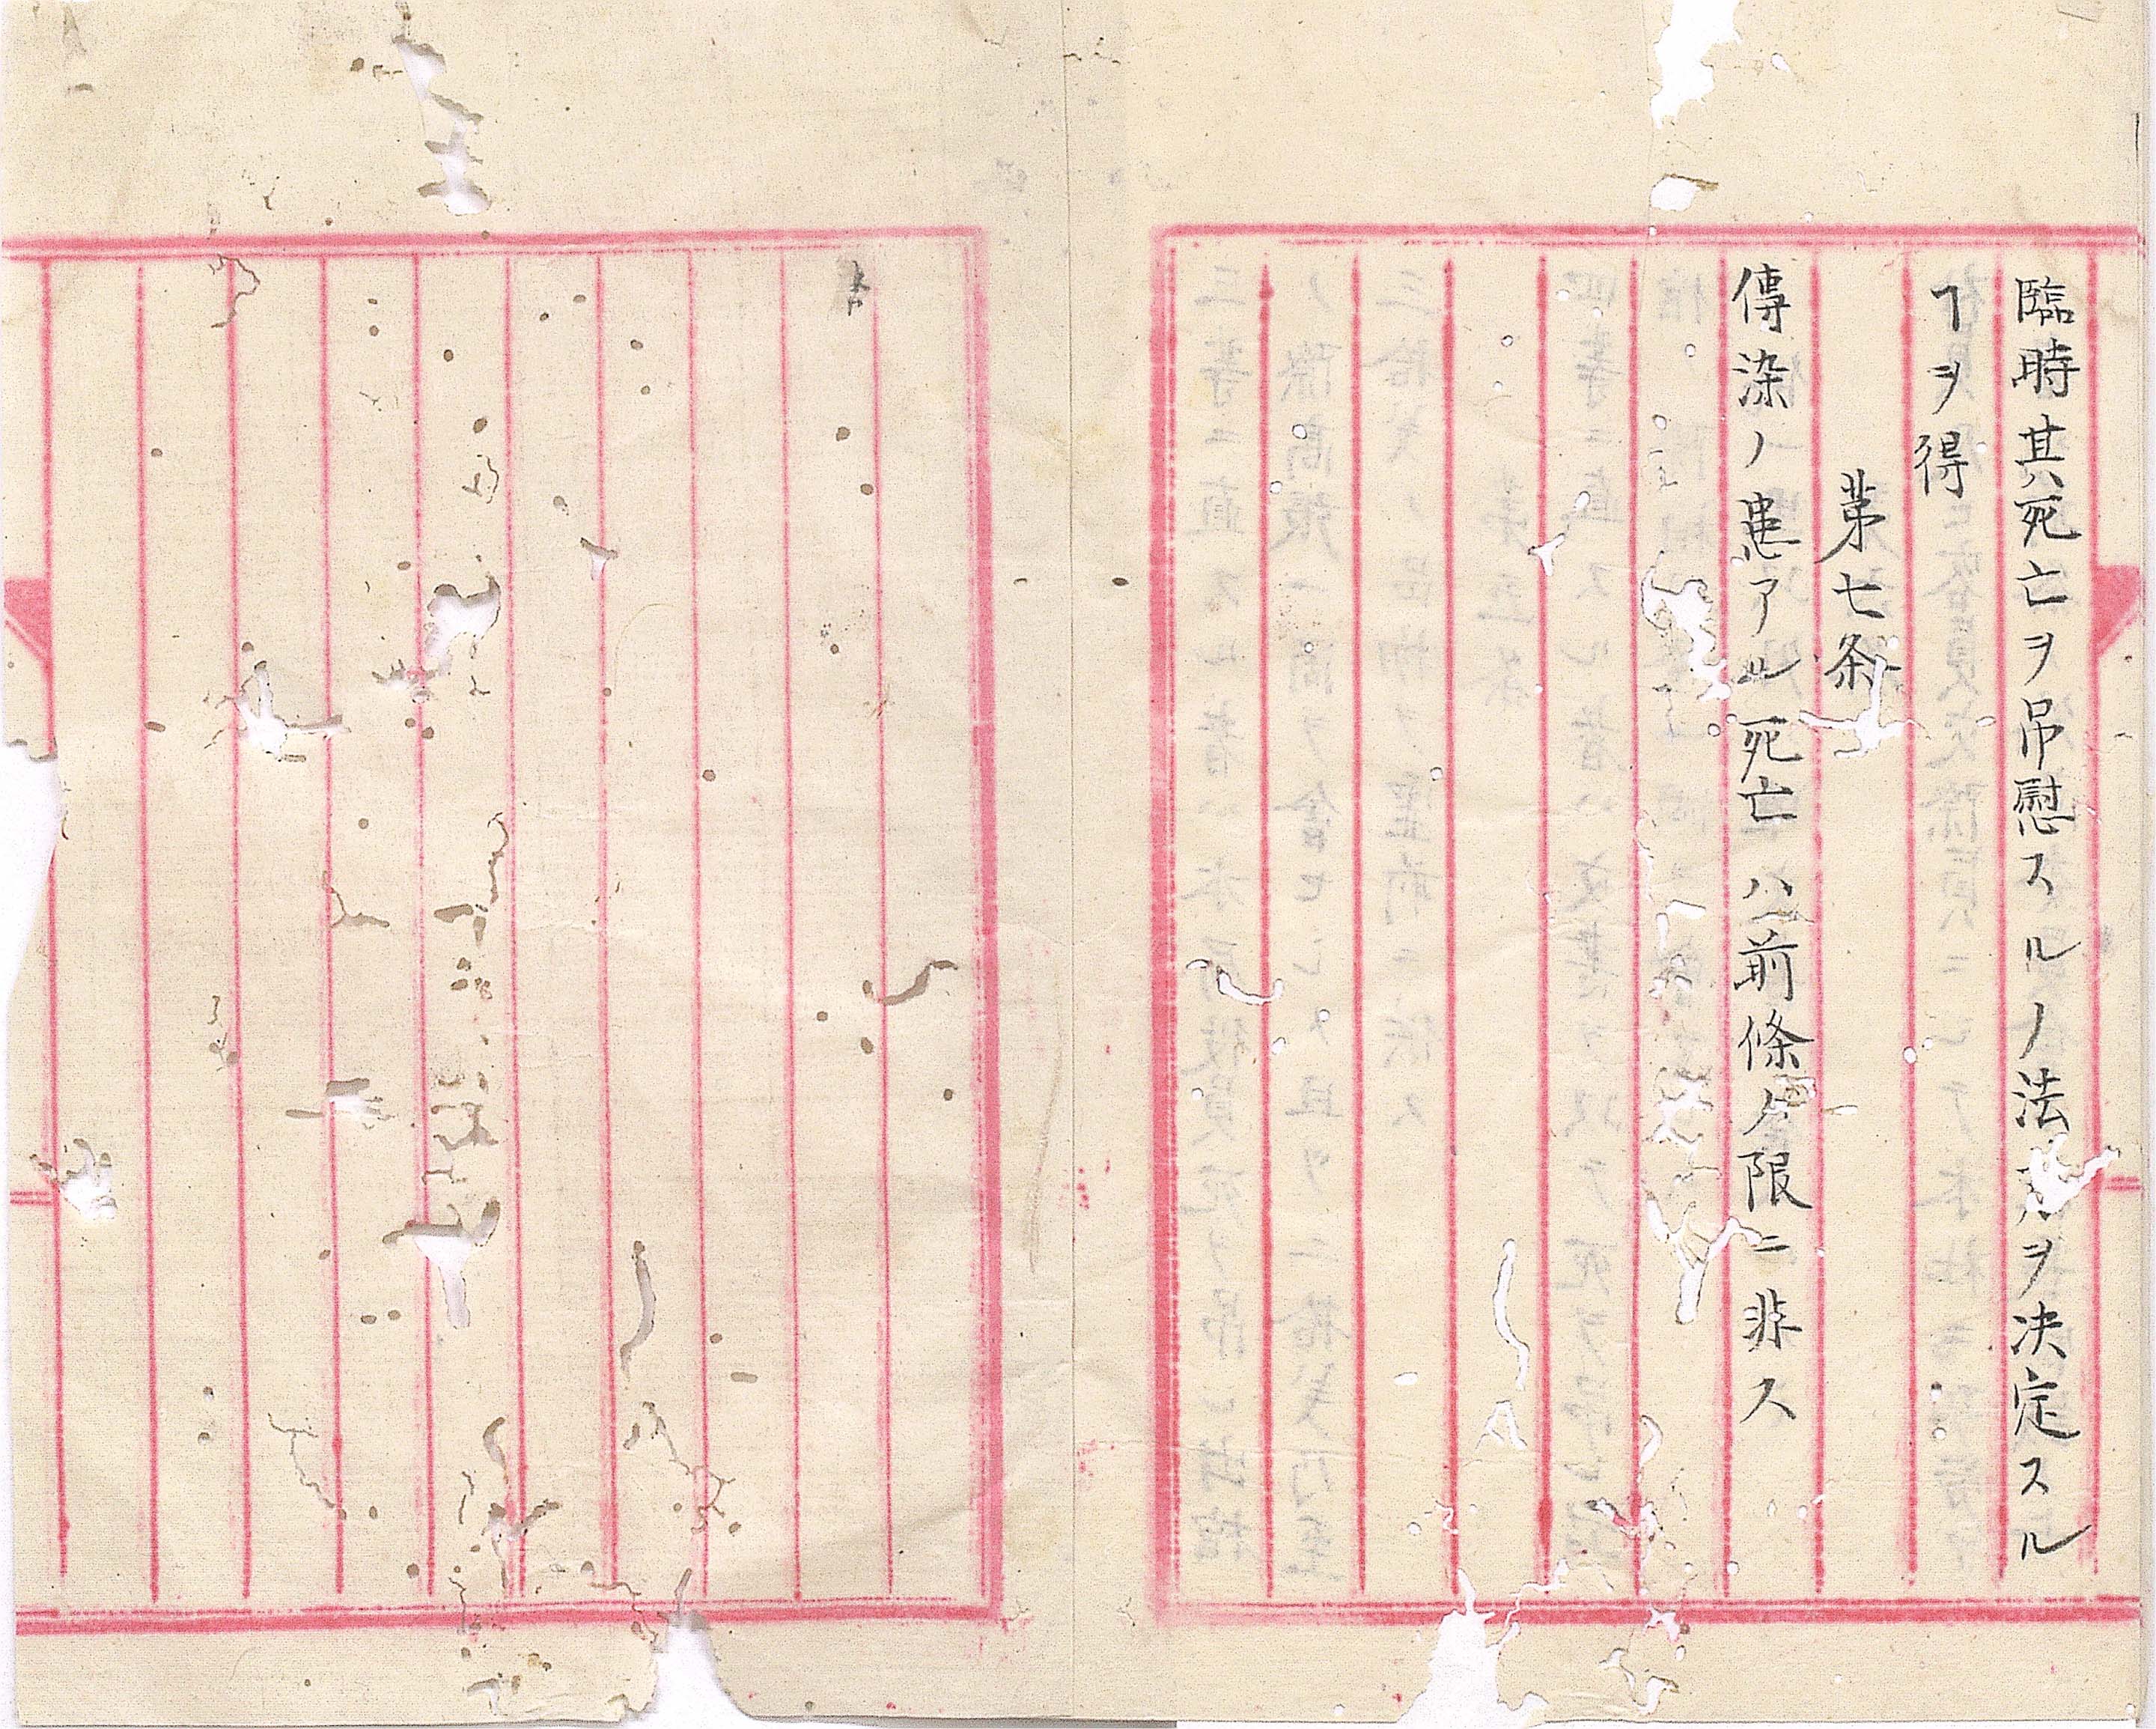 臨時其死亡ヲ吊慰スルノ法ヲ決定スル
ヿヲ得
第七条
傳染ノ患アル死亡ハ前條ノ限ニ非ス